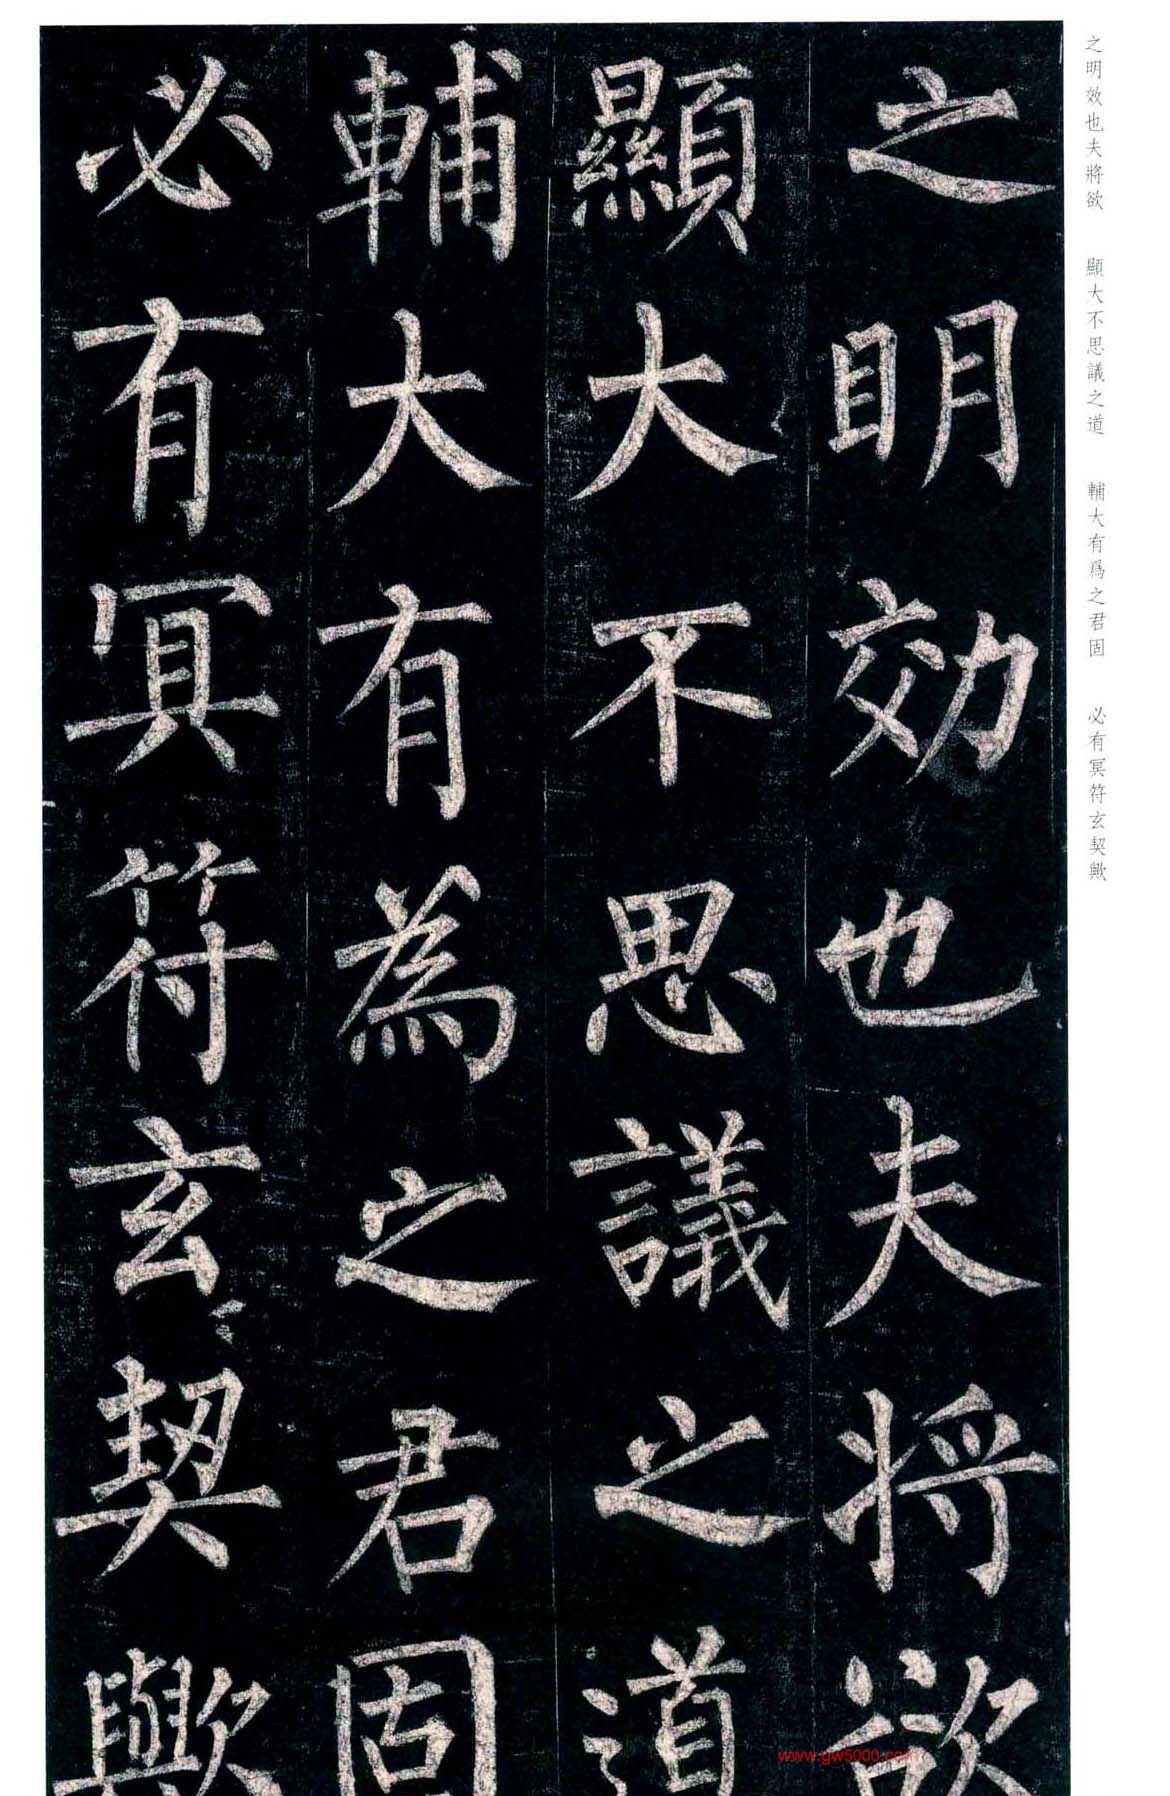 之明効也夫將欲
顯大不思議之道
輔大有為之君固
必有冥符玄契歟
之明效也夫將欲 顯大不思議之道 輔大有爲之君固 必有冥符玄契歟
www.gw5000.com